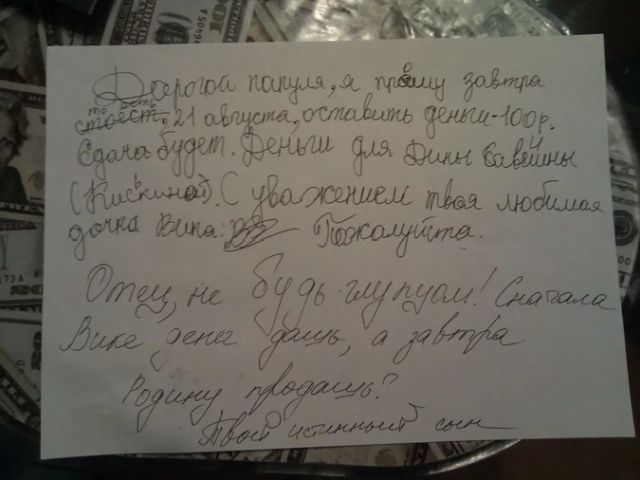 Дорогой папуля, я прошу завтра
то есть
стоест. 21 августа, оставить деньги-100р.
Сдача будет. Деньги для Дины Савейны
(Кискиной). С уважением твоя любимая
дочка Вика. Пожалуйста.
Отец, не будь глупцом! Сначала
Вике денег дашь, а завтра
Родину продашь?
Твой истинный сын